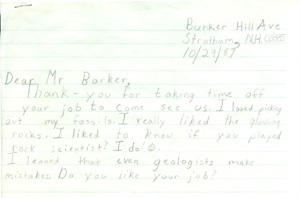 Bunker Hill Ave
Stratham, N.H. 03885
10/29/87
Dear Mr Barker,
Thank-you for taking time off
your job to come see us. I loved picking
out my fossils. I really liked the glowing
rocks. I liked to know if you played
rock scientist? I do☺.
I leaned that even geologists make
mistakes Do you like your job?